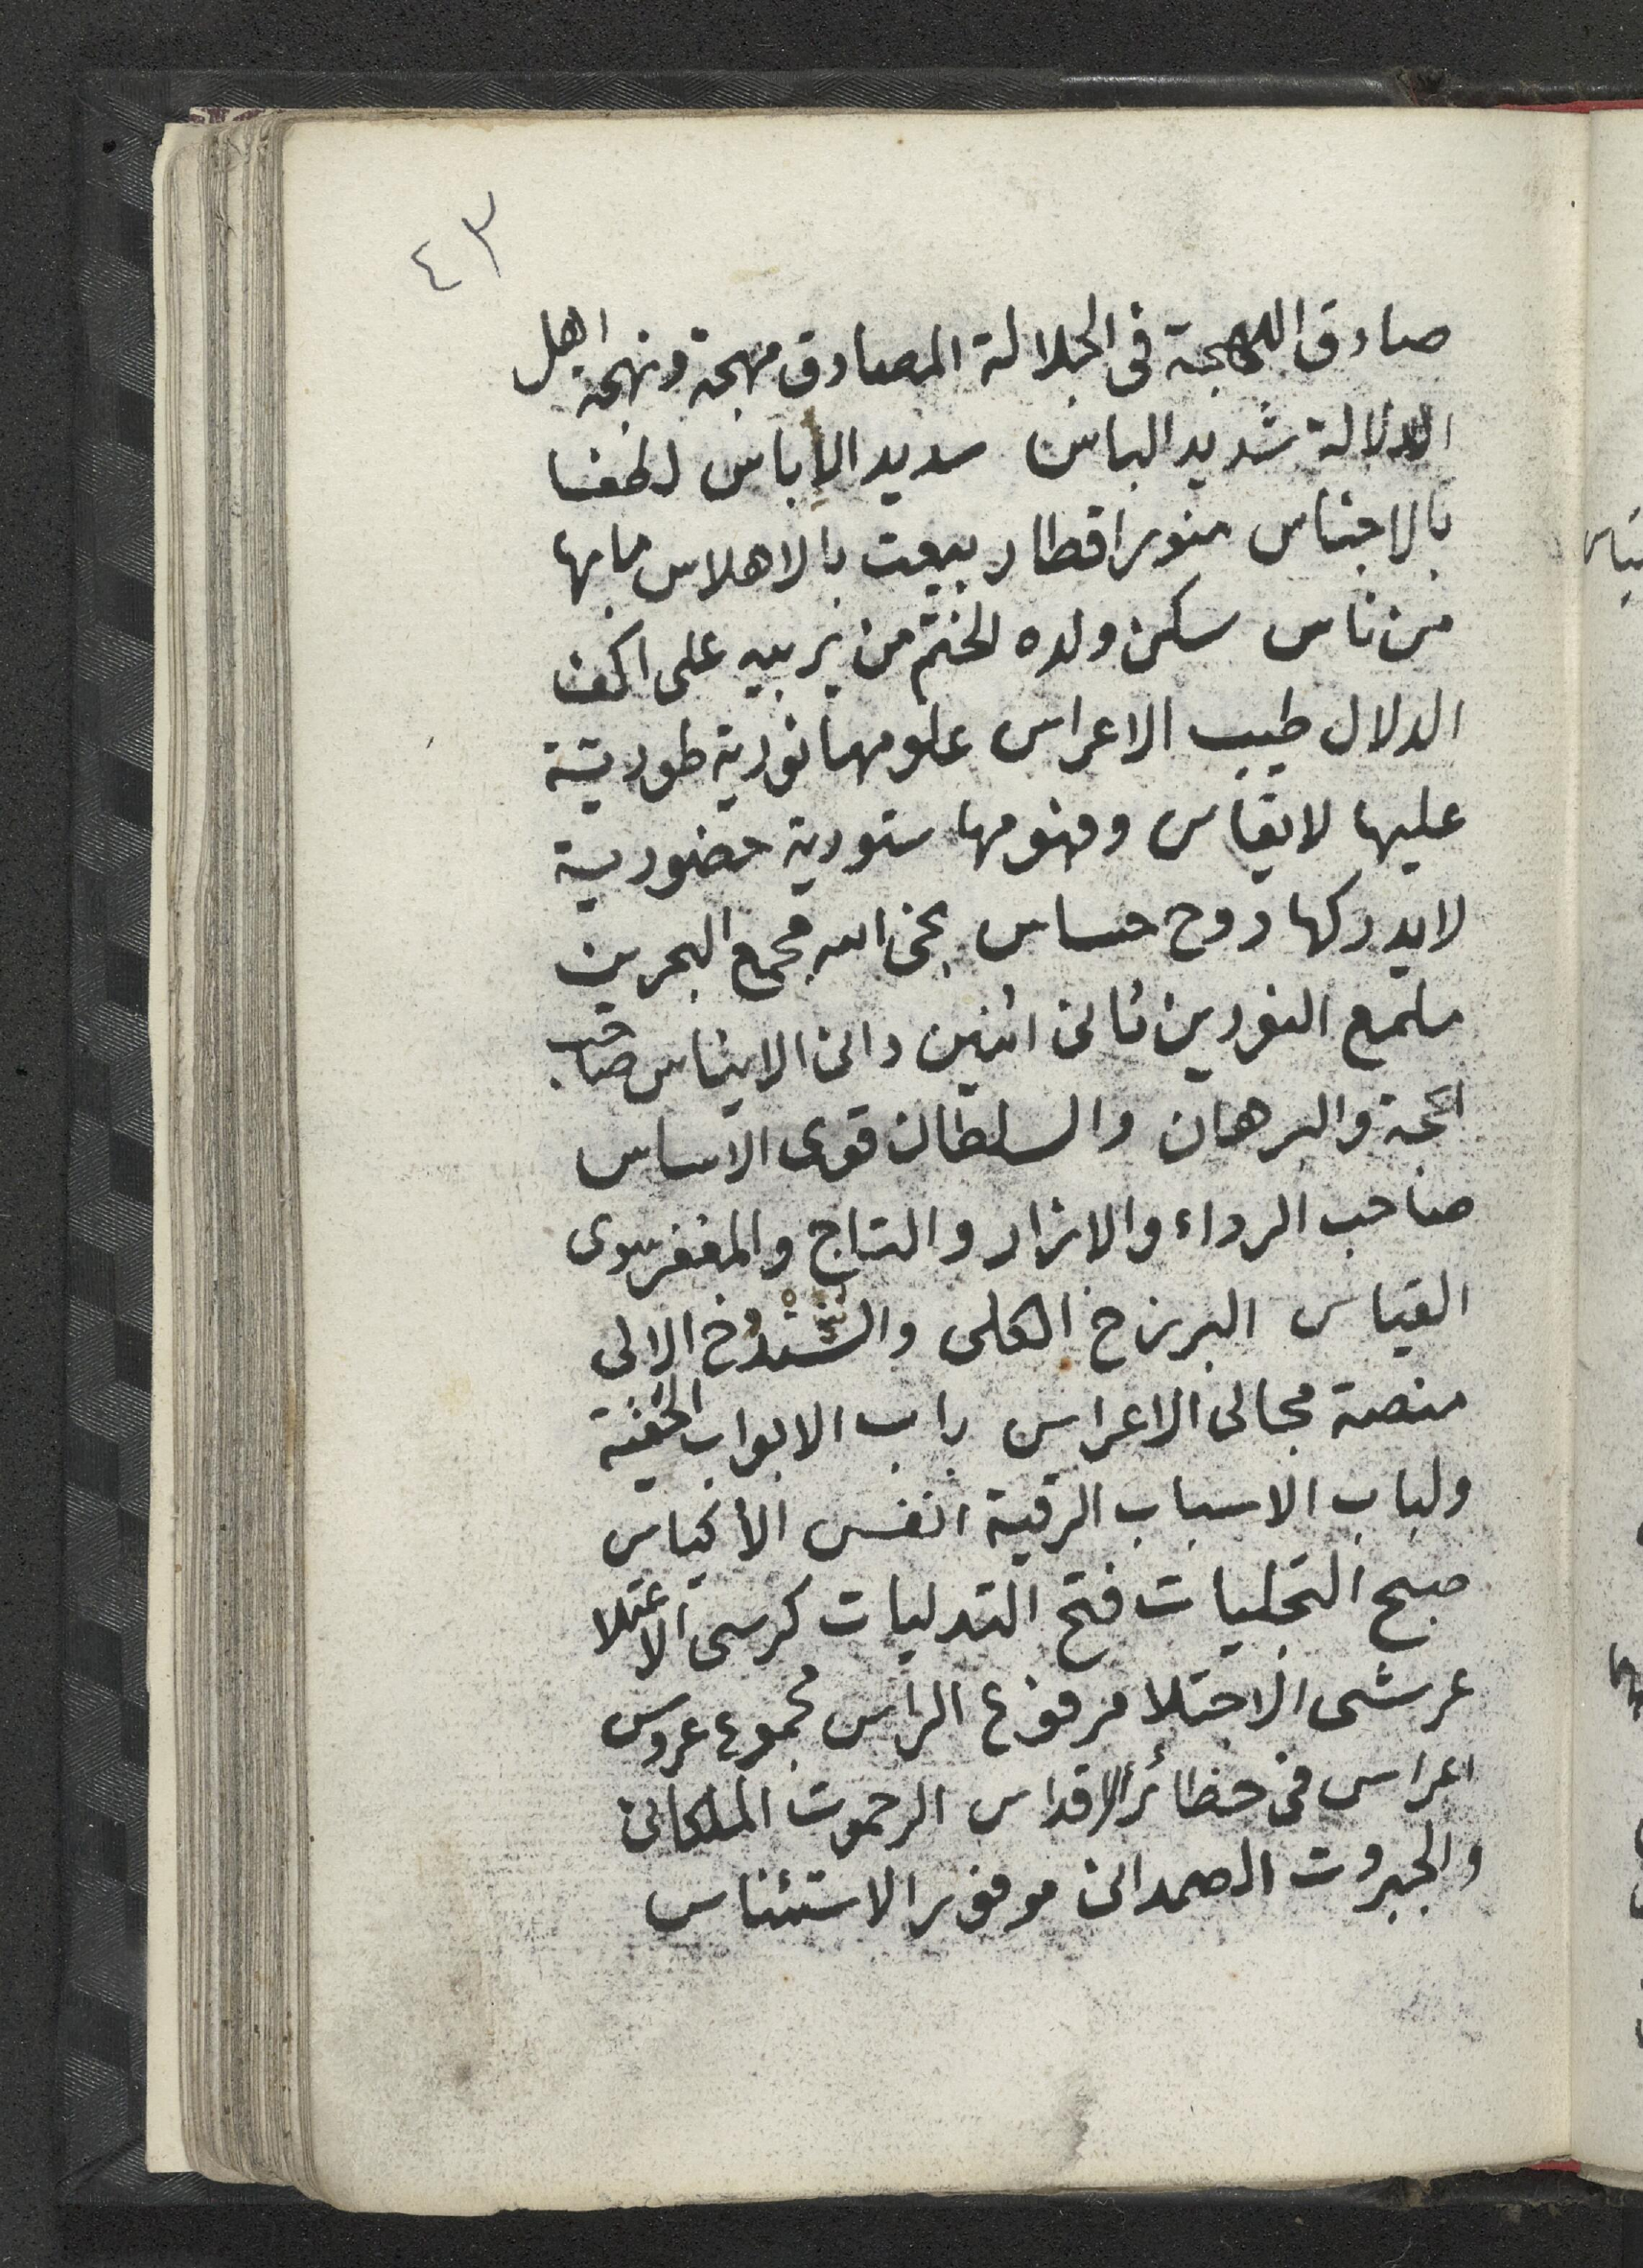 ٤٣
صادق اللهجة فى الجلالة المصادق مهجة ونهجه اهل
الدلالة شديد الباس سديد الإباس لطفا
بالاجناس منور اقطار بيعت بالاهلاس مابها
من ناس سكن ولده لختم من يربيه على اكف
الدلال طيب الاعراس علومها نورية طورية
عليها لايقاس وفهومها ستورية حضورية
لايدركها روح حساس بخى الله مجمع البحرين
ملمع النورين ثانى اثنين دانى الايناس صاحب
الحجة والبرهان والسلطان قوى الاساس
صاحب الرداء والازار والتاج والمغفر سوى
القياس البرزخ الكلى والشندخ الالى
منصة مجالى الاعراس باب الابواب الحقية
ولباب الاسباب الرقية انفس الأكياس
صبح التجليات فتح التدليات كرسى الاعتلا
عرشى الاجتلا مرفوع الراس مجموع عروس
اعراس فى حظائر الاقداس الرحموت الملكانى
والجبروت الصمدانى موفور الاستئناس